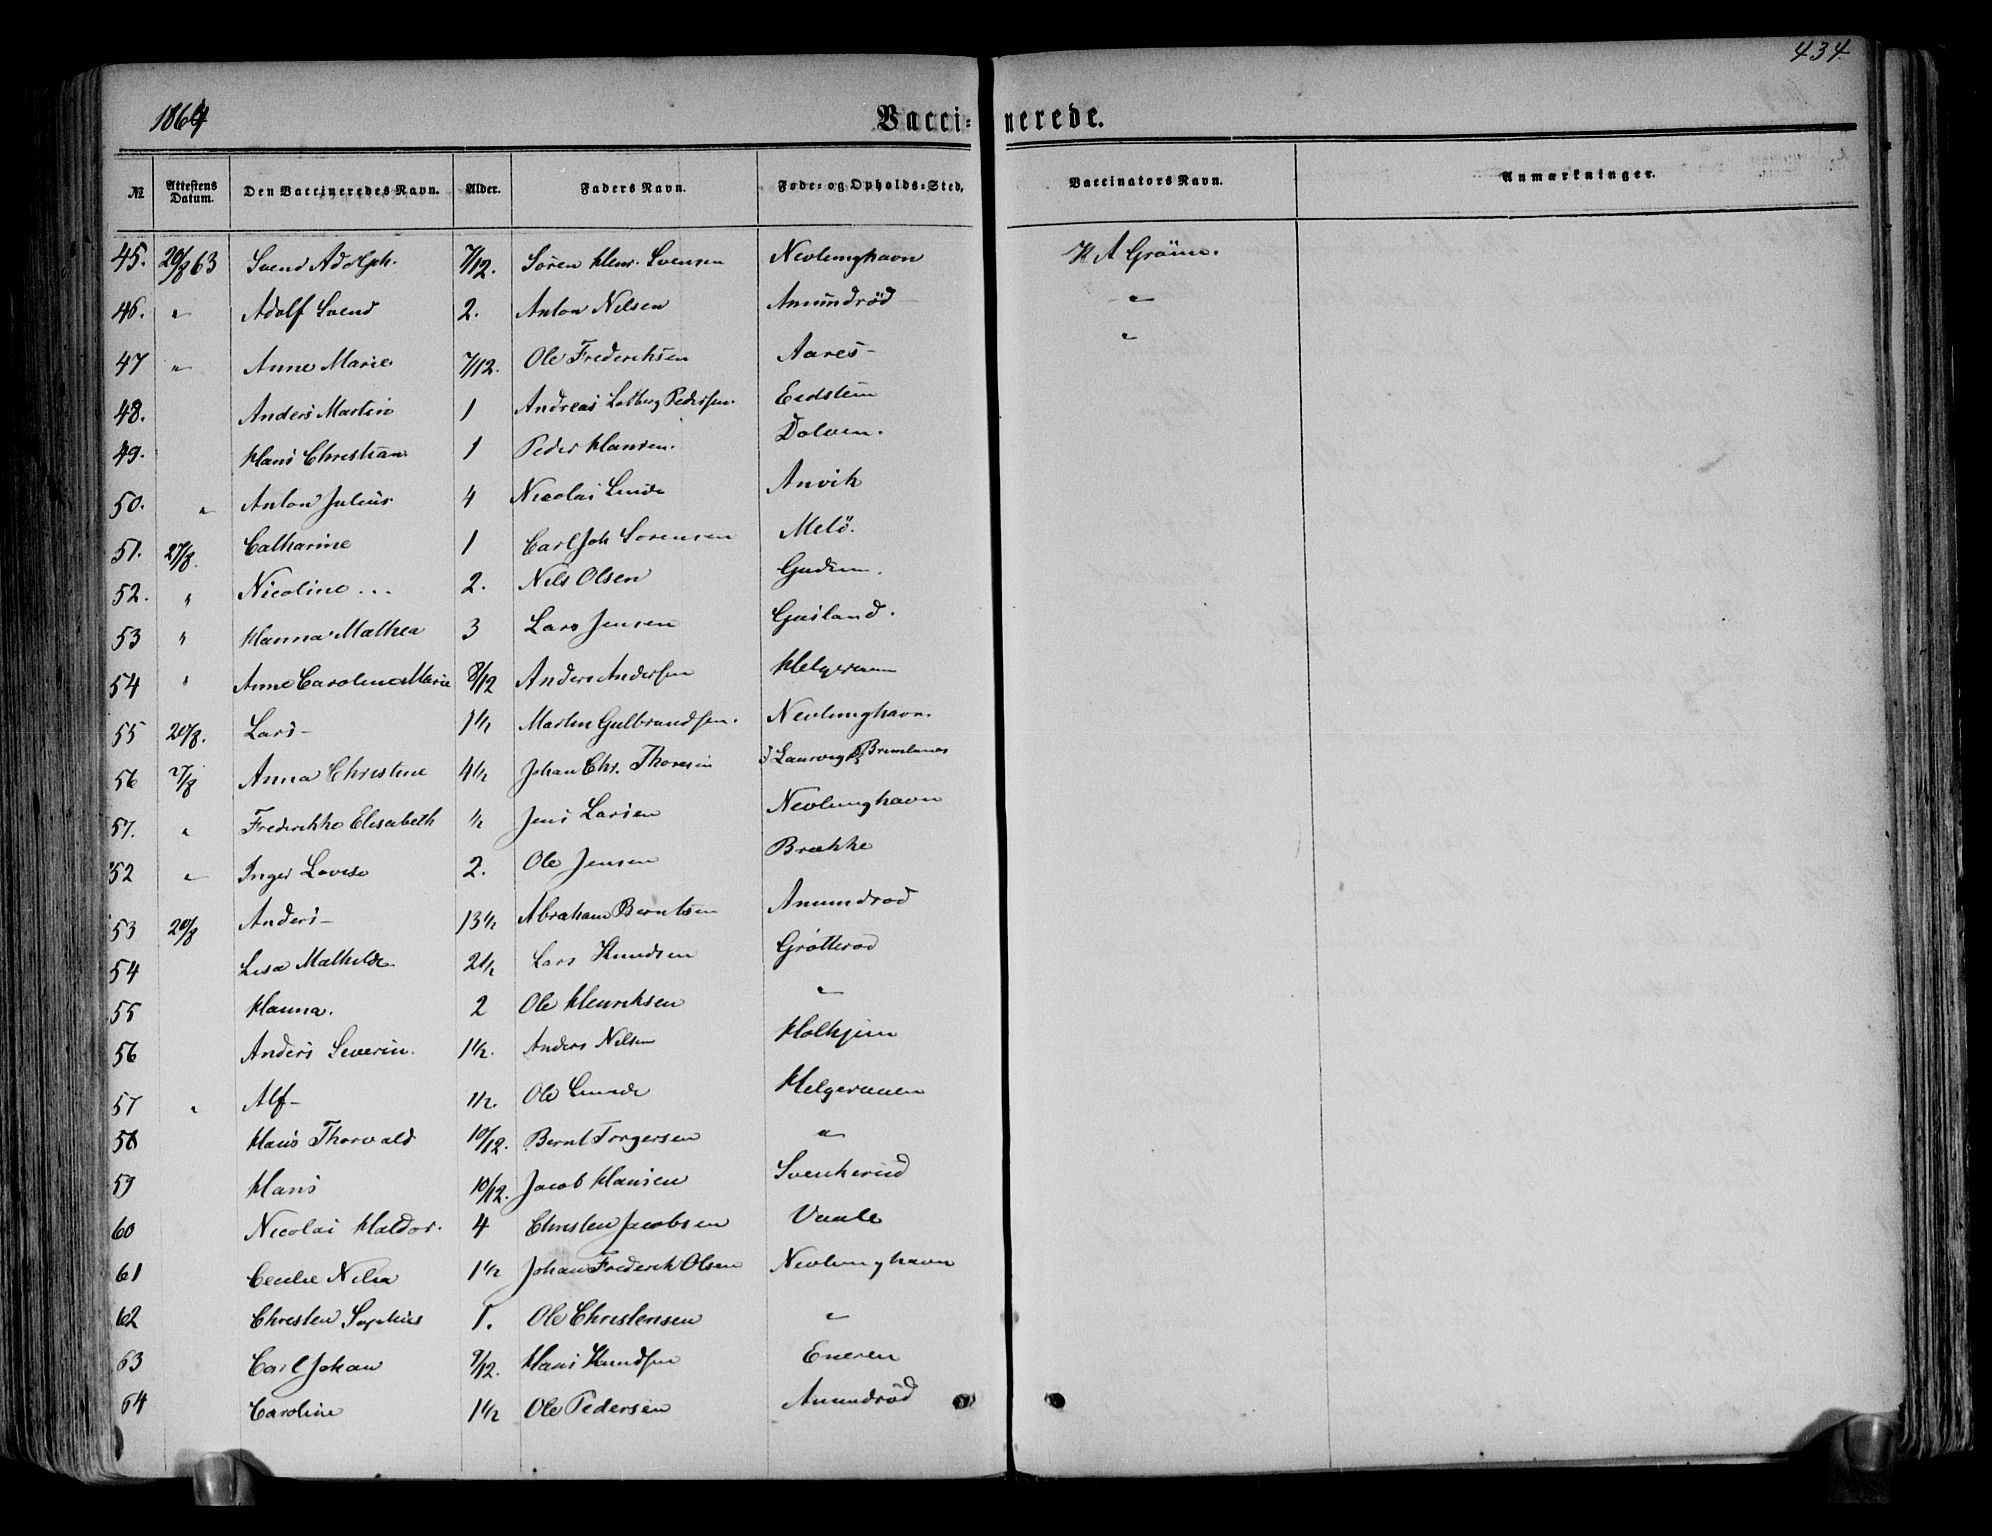 434.
1864
Vaccinerede.
№ Attestens Datum. Den Vaccineredes Navn. Alder. Faders Navn. Føde- og Opholds-Sted. Vaccinators Navn. Anmærkninger.
45. 20/8 63 Svend Adolph. 7/12. Sören Henr. Svensen Nevlunghavn K A Gröim.
46. " Adolf Svend 2. Anton Nilsen Anumdröd "
47 " Anne Marie 7/12. Ole Frederiksen Aares "
48. Anders Martin 1 Andreas Pedersen. Eidsten
49. Hans Christian 1 Peder Hansen. Dolven.
50. " Anton Julius 4 Nicolai Lunde Anvik
51. 27/8. Catharine 1 Carl Joh Sörensen Melö.
52. " Nicoline 2. Nils Olsen Gudem.
53 " Hanna Mathea 3 Lars Jensen Gusland.
54 " Anne Caroline Marie 8/12 Anders Andersen Helgeraaen
55 20/8. Lars 1 1/2 Martin Gulbrandsen. Nevlunghavn.
56 27/8 Anna Christine 4 1/2 Johan Chr. Thoresen Laurvig Brunlanes
57. " Frederikke Elisabeth 1/2 Jens Larsen Nevlunghavn
52 " Inger Lovise 2. Ole Jensen Brække
53 20/8 Anders 13 1/2 Abraham Berntsen Anumdrod
54 Lisa Mathilde 2 1/2 Lars Knudsen Grötterod
55 Hanna. 2 Ole Henriksen "
56 Anders Severin. 1 1/2. Anders Nilsen Holhjem
57 " Alf 1/2. Ole Lunde Helgeraaen
58 Hans Thorvald 10/12. Bernt Torgersen "
59 Hans 10/12. Jacob Hansen Svenkerud
60 Nicolai Haldor. 4 Christen Jacobsen Vaale
61 Cecilie Nilia 1 1/2 Johan Frederik Olsen Nevlunghavn
62 Christen Sophus 1. Ole Christensen "
63 Carl Johan 9/12. Hans Knudsen Eneren
64 Caroline 1 1/2 Ole Pedersen Anumdröd